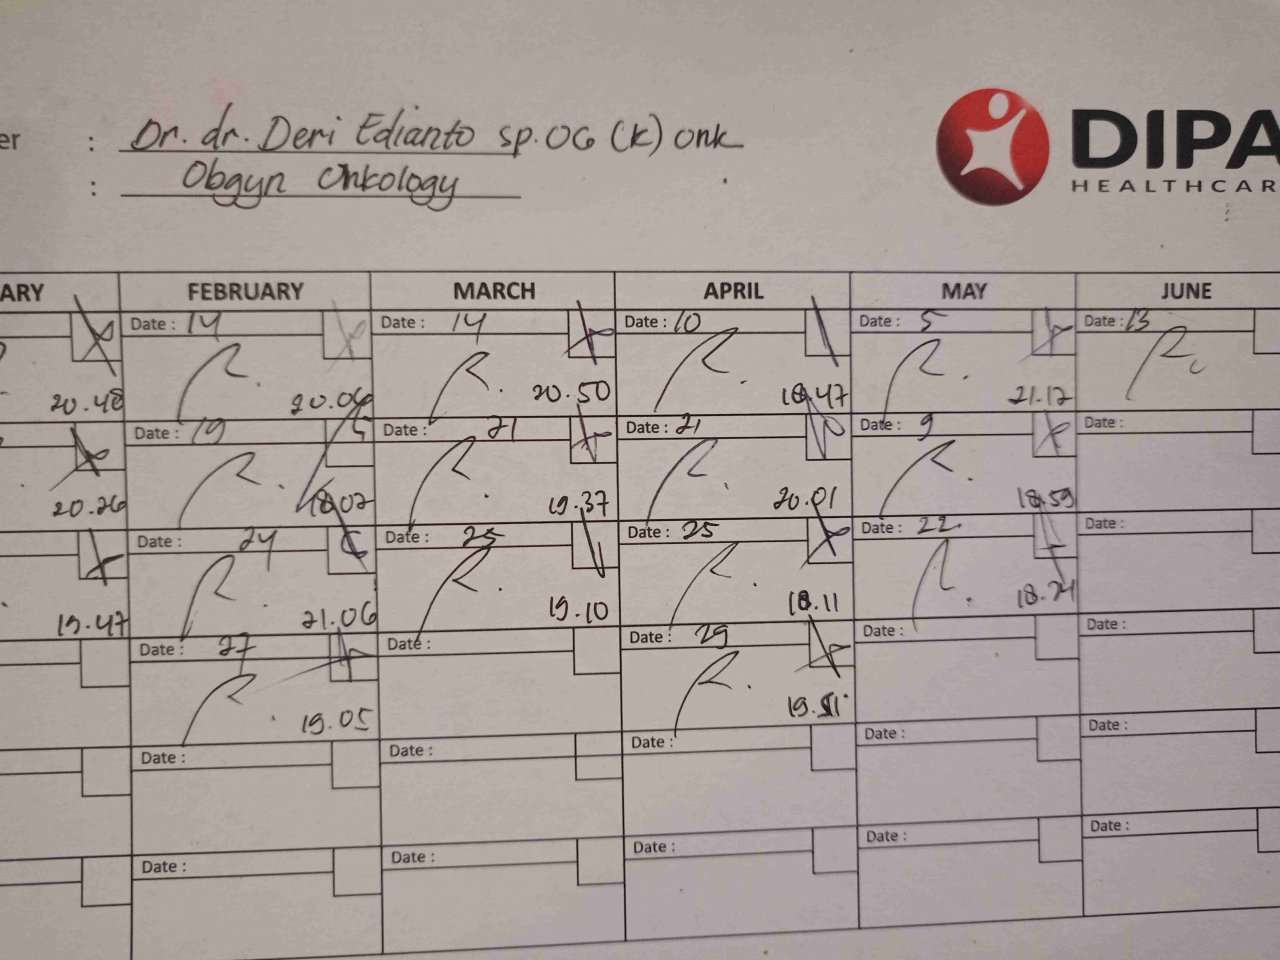 er : Dr. dr. Deri Edianto sp.OG (K) onk
: Obgyn Onkology
DIPA
HEALTHCAR
ARY FEBRUARY MARCH APRIL MAY JUNE
Date : 14 Date : 14 Date : 10 Date : 5 Date : 13
20.48 20.06 20.50 18.47 21.12
Date : 19 Date : 21 Date : 21 Date : 9 Date :
20.26 18.02 19.37 20.01 18.59
Date : 24 Date : 25 Date : 25 Date : 22 Date :
19.47 21.06 19.10 18.11 18.24
Date : 27 Date : Date : 29 Date : Date :
19.05
Date : Date : Date : Date : Date :
Date : Date : Date : Date : Date :